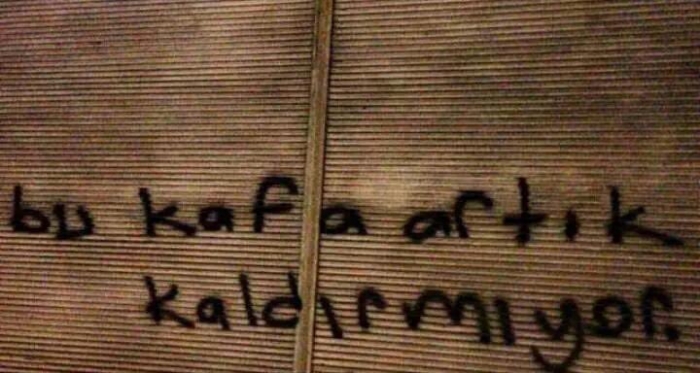 bu kafa artık
kaldırmıyor.